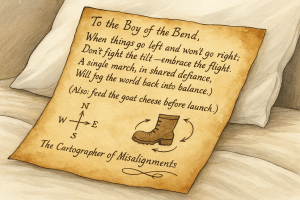 To the Boy of the Bend,
When things go left and won't go right;
Don't fight the tilt—embrace the flight.
A single march, in shared defiance,
Will jog the world back into balance.)
(Also: feed the goat cheese before launch.)
N
W E
S
The Cartographer of Misalignments